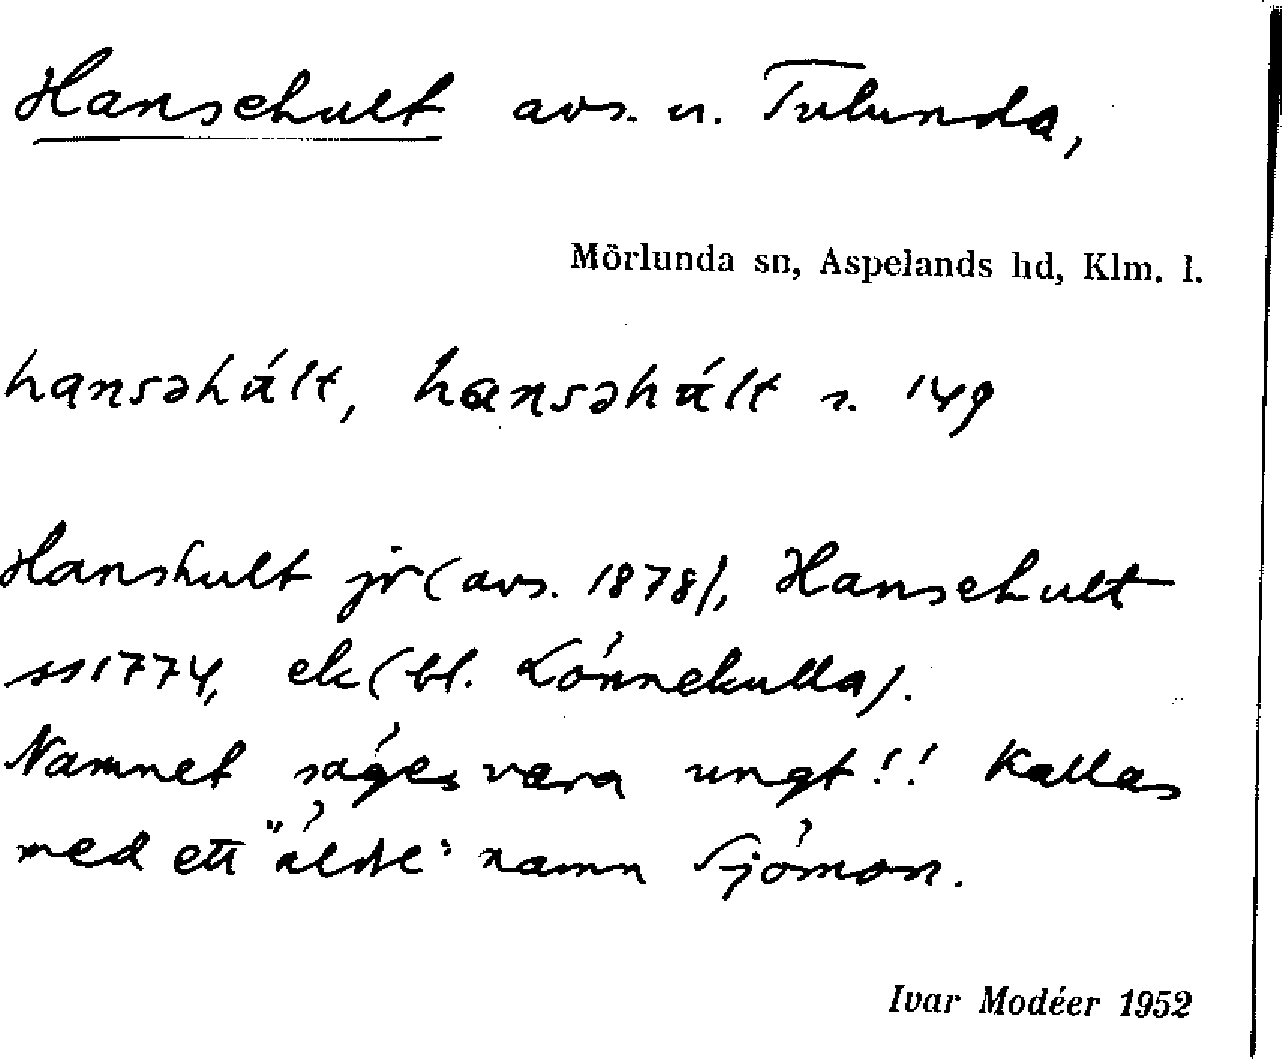 Hansehult avs. u. Tulunda,
Mörlunda sn, Aspelands hd, Klm. l.
hansəhúlt, hansəhúlt s. 149
Hanshult jr (avs. 1878), Hansehult
ss 1774, ek (bl. Lönnekulla).
Namnet säges vara ungt!! Kallas
med ett "äldre" namn Sjömon.
Ivar Modéer 1952